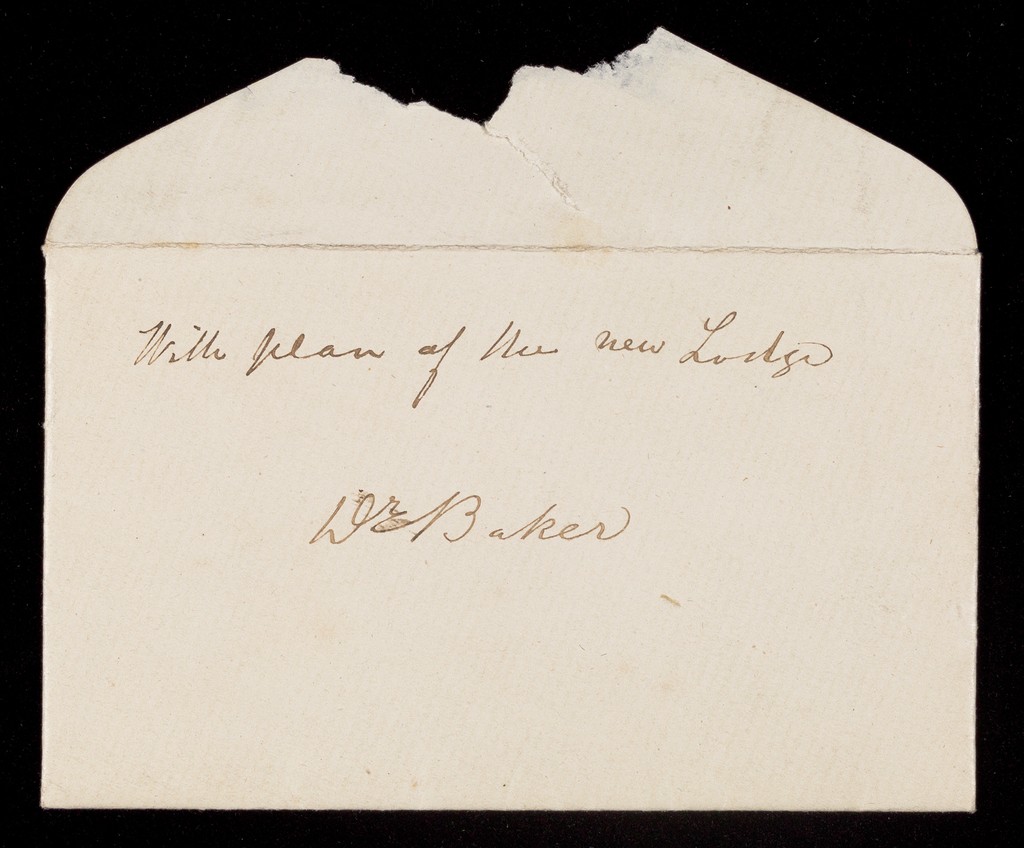 With plan of the new Lodge
Dr Baker